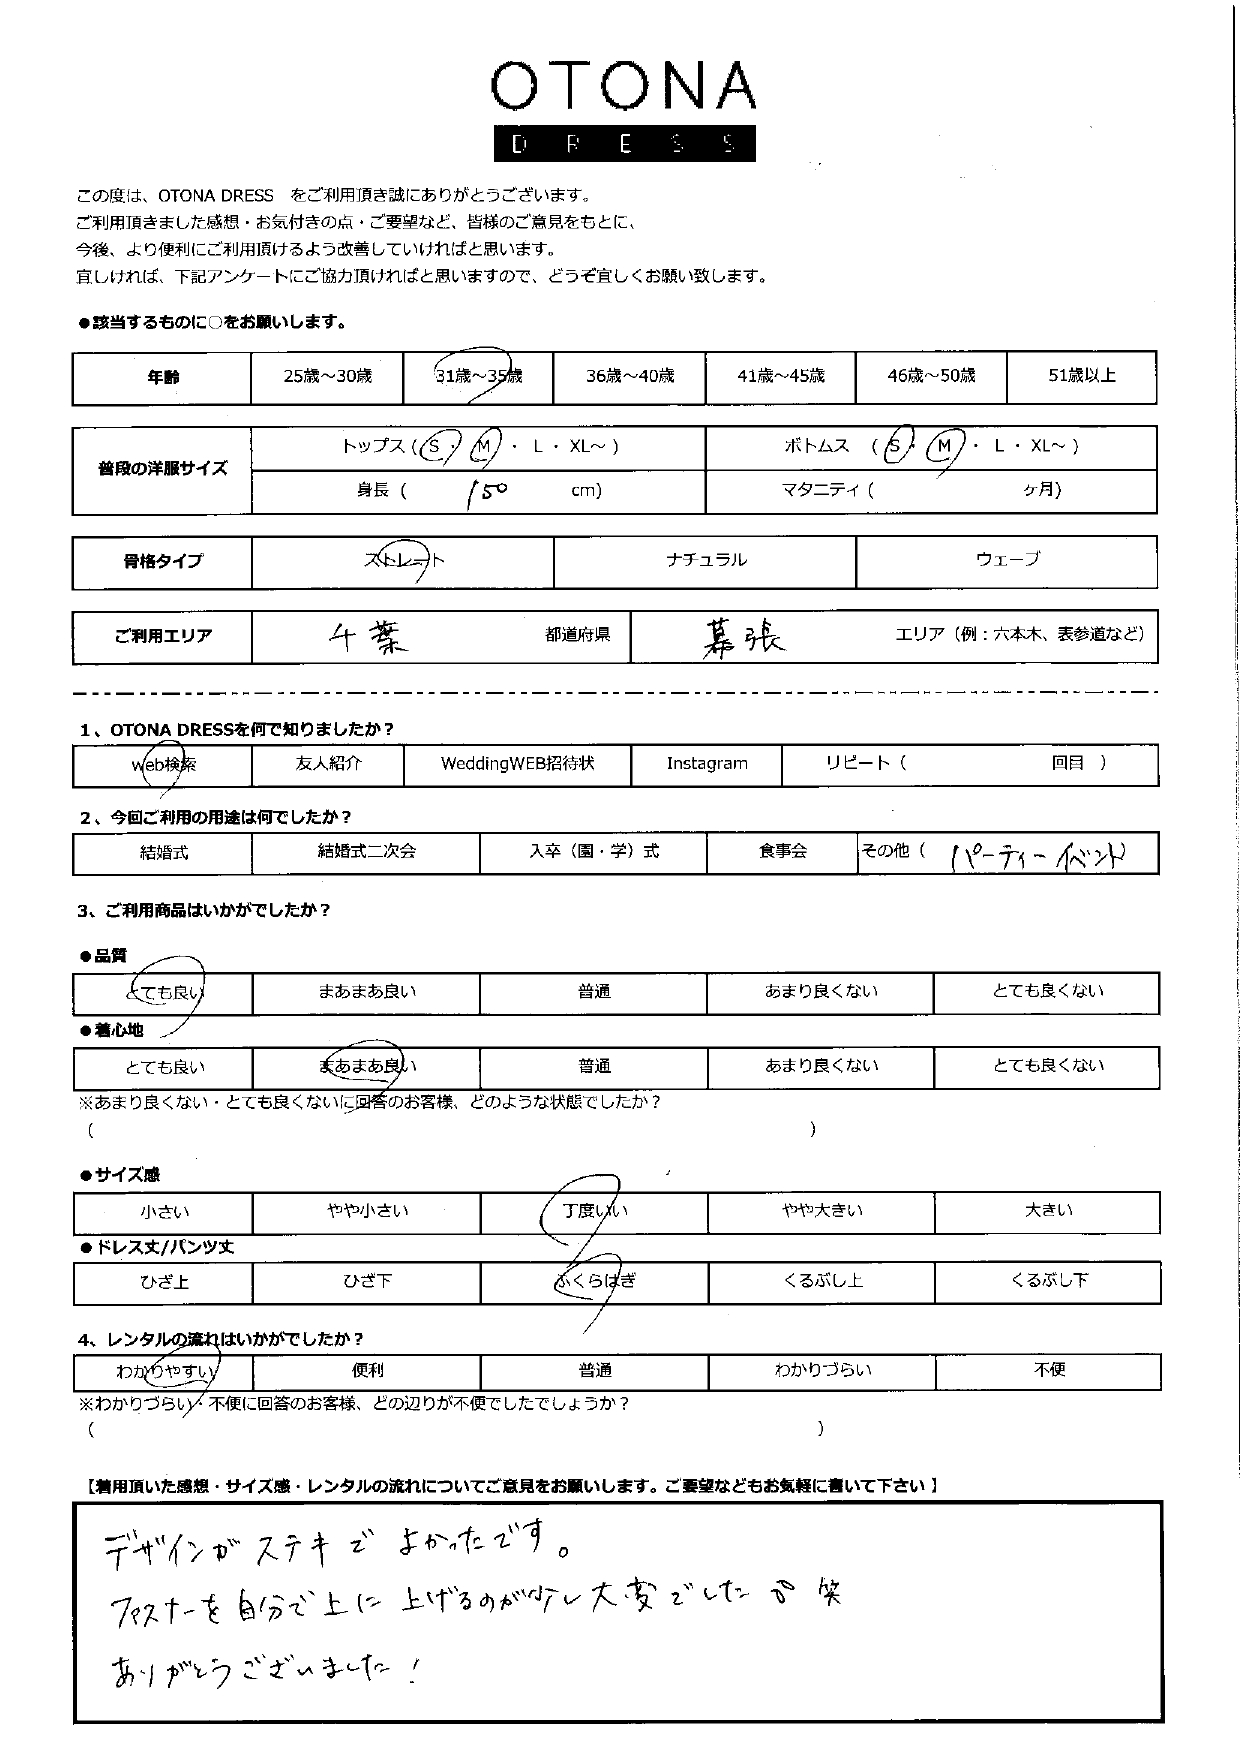 OTONA
DRESS
この度は、OTONA DRESS をご利用頂き誠にありがとうございます。
ご利用頂きました感想・お気付きの点・ご要望など、皆様のご意見をもとに、
今後、より便利にご利用頂けるよう改善していければと思います。
宜しければ、下記アンケートにご協力頂ければと思いますので、どうぞ宜しくお願い致します。
●該当するものに○をお願いします。
年齢 25歳～30歳 31歳～35歳 36歳～40歳 41歳～45歳 46歳～50歳 51歳以上
普段の洋服サイズ トップス（S・M・L・XL～） ボトムス（S・M・L・XL～）
身長（ 150 cm） マタニティ（ ヶ月）
骨格タイプ ストレート ナチュラル ウェーブ
ご利用エリア 千葉 都道府県 幕張 エリア（例：六本木、表参道など）
1、OTONA DRESSを何で知りましたか？
web検索 友人紹介 WeddingWEB招待状 Instagram リピート（ 回目 ）
2、今回ご利用の用途は何でしたか？
結婚式 結婚式二次会 入卒（園・学）式 食事会 その他（ パーティーイベント
3、ご利用商品はいかがでしたか？
●品質
とても良い まあまあ良い 普通 あまり良くない とても良くない
●着心地
とても良い まあまあ良い 普通 あまり良くない とても良くない
※あまり良くない・とても良くないに回答のお客様、どのような状態でしたか？
（ ）
●サイズ感
小さい やや小さい 丁度いい やや大きい 大きい
●ドレス丈/パンツ丈
ひざ上 ひざ下 ふくらはぎ くるぶし上 くるぶし下
4、レンタルの流れはいかがでしたか？
わかりやすい 便利 普通 わかりづらい 不便
※わかりづらい・不便に回答のお客様、どの辺りが不便でしたでしょうか？
（ ）
【着用頂いた感想・サイズ感・レンタルの流れについてご意見をお願いします。ご要望などもお気軽に書いて下さい】
デザインがステキでよかったです。
ファスナーを自分で上に上げるのが少し大変でした 笑
ありがとうございました！